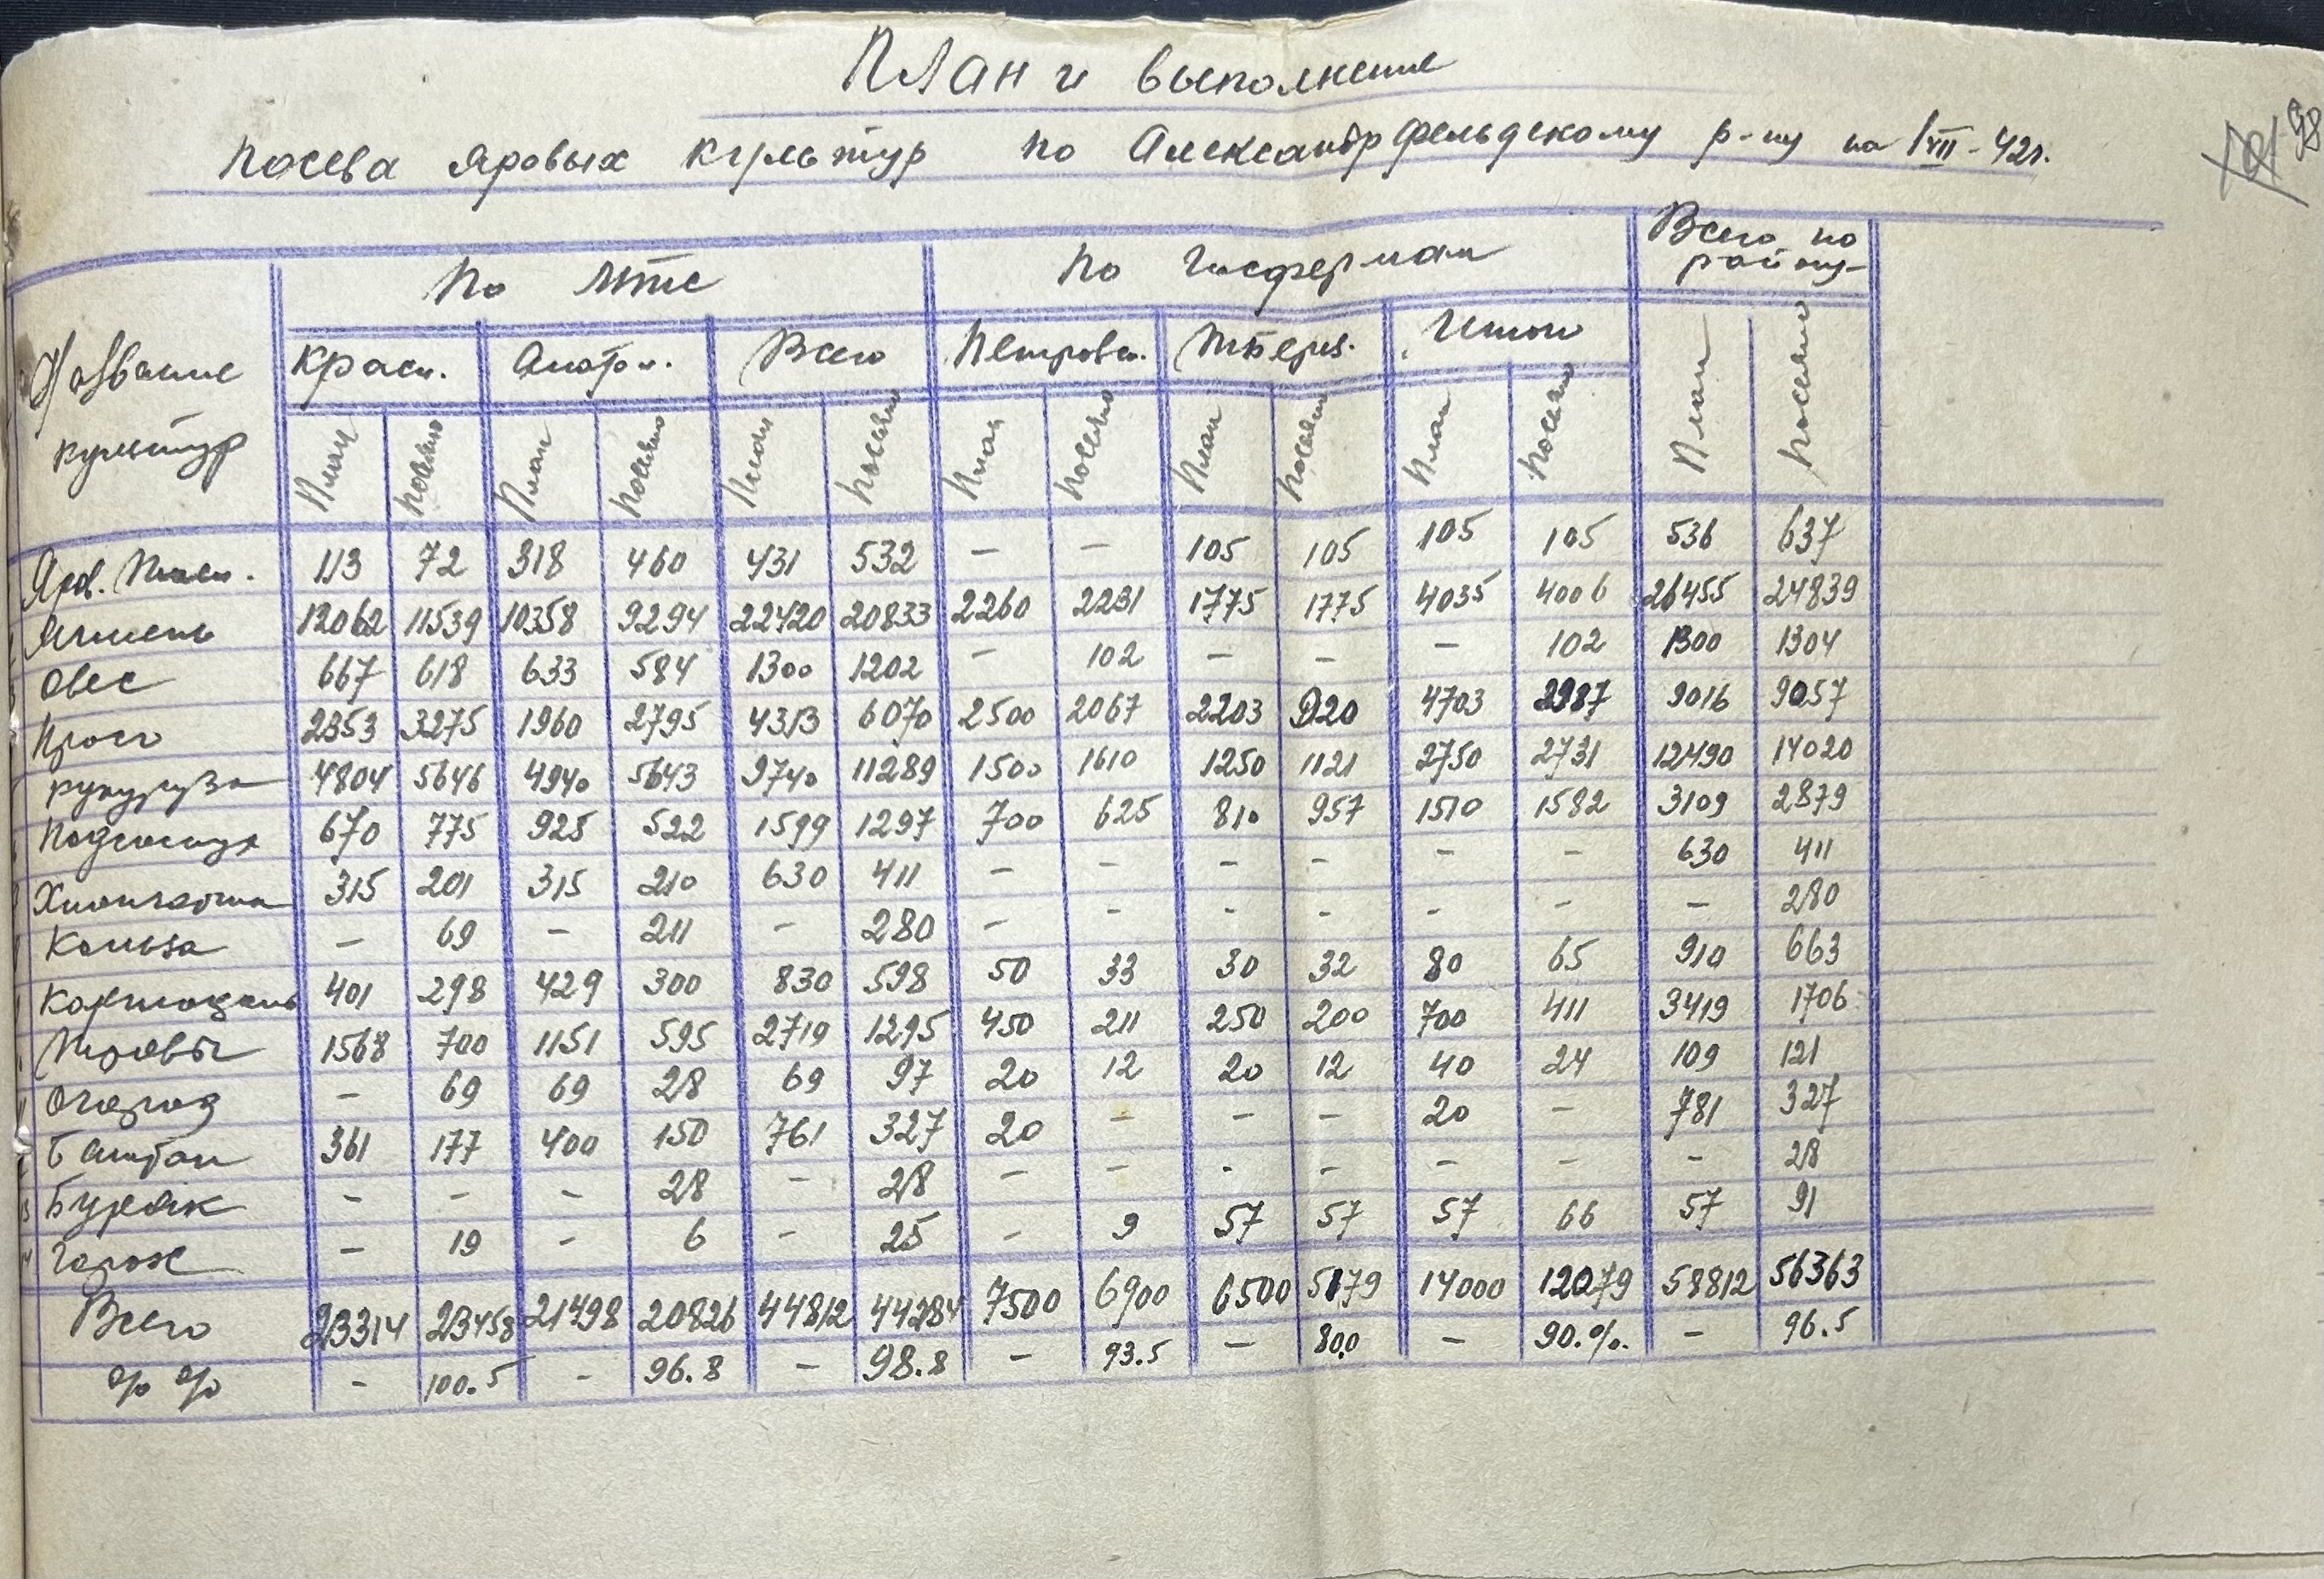 План и выполнение
посева яровых культур по Александрфельдскому р-ну на 1 VII-42г.
98
Название культур | По МТС | По Госфермам | Всего по району
Красн. | Анатол. | Всего | Петровск. | Итого
План | посеяно | План | посеяно | План | посеяно | План | посеяно | План | посеяно | План | посеяно | План | посеяно
Яров. Пшен. | 113 | 72 | 318 | 460 | 431 | 532 | — | — | 105 | 105 | 105 | 105 | 536 | 637
Ячмень | 12062 | 11539 | 10358 | 9294 | 22420 | 20833 | 2260 | 2231 | 1775 | 1775 | 4035 | 4006 | 26455 | 24839
Овес | 667 | 618 | 633 | 584 | 1300 | 1202 | — | 102 | — | — | — | 102 | 1300 | 1304
Просо | 2353 | 3275 | 1960 | 2795 | 4313 | 6070 | 2500 | 2067 | 2203 | 920 | 4703 | 2987 | 9016 | 9057
кукуруза | 4804 | 5646 | 4940 | 5643 | 9740 | 11289 | 1500 | 1610 | 1250 | 1121 | 2750 | 2731 | 12490 | 14020
Подсолнух | 670 | 775 | 925 | 522 | 1599 | 1297 | 700 | 625 | 810 | 957 | 1510 | 1582 | 3109 | 2879
Хлопчатн | 315 | 201 | 315 | 210 | 630 | 411 | — | — | — | — | — | — | 630 | 411
Кольза | — | 69 | — | 211 | — | 280 | — | — | — | — | — | — | — | 280
Картофель | 401 | 298 | 429 | 300 | 830 | 598 | 50 | 33 | 30 | 32 | 80 | 65 | 910 | 663
1568 | 700 | 1151 | 595 | 2719 | 1295 | 450 | 211 | 250 | 200 | 700 | 411 | 3419 | 1706
Огород | — | 69 | 69 | 28 | 69 | 97 | 20 | 12 | 20 | 12 | 40 | 24 | 109 | 121
Баштан | 361 | 177 | 400 | 150 | 761 | 327 | 20 | — | — | — | 20 | — | 781 | 327
Буряк | — | — | — | 28 | — | 28 | — | — | - | — | — | — | — | 28
Горох | — | 19 | — | 6 | — | 25 | — | 9 | 57 | 57 | 57 | 66 | 57 | 91
Всего | 23314 | 23458 | 21498 | 20826 | 44812 | 44284 | 7500 | 6900 | 6500 | 5179 | 14000 | 12079 | 58812 | 56363
% % | — | 100.5 | — | 96.8 | — | 98.8 | — | 93.5 | — | 80,0 | — | 90.%. | — | 96.5